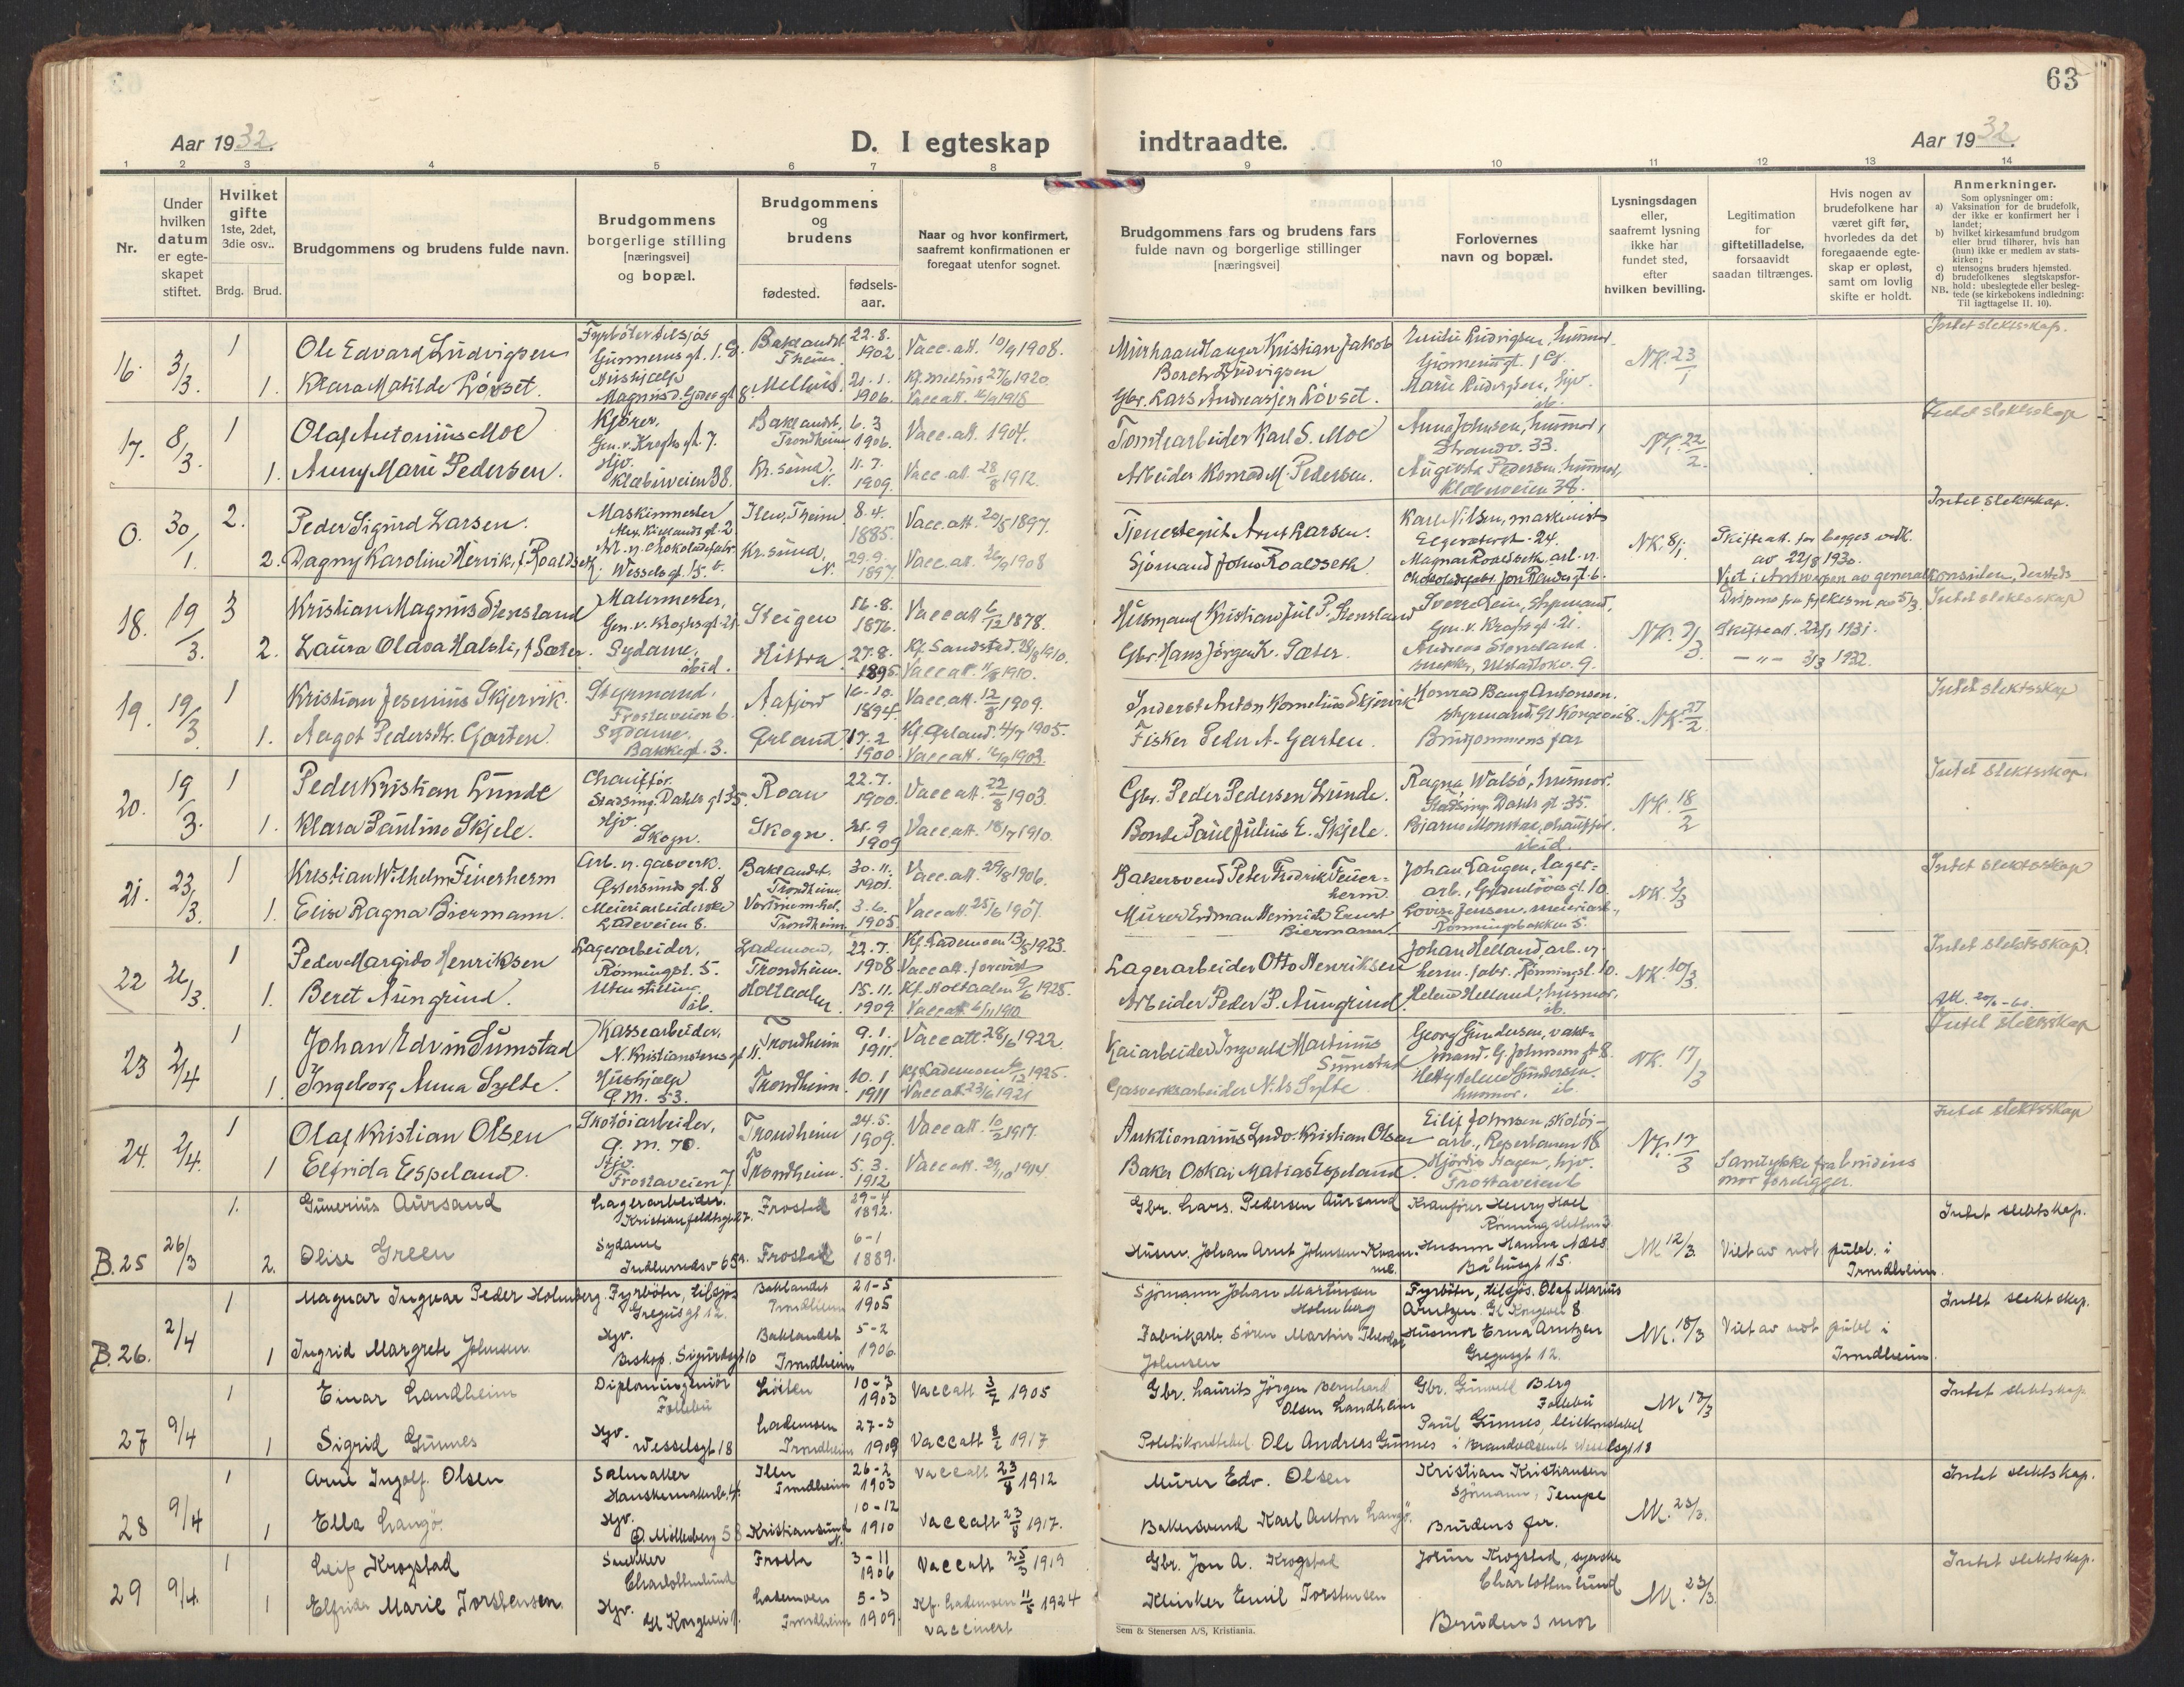 63
Aar 1932.
D. I egteskap
indtraadte.
Aar 1932.
1 2 3 4 5 6 7 8 9 10 11 12 13 14
Nr.
Under hvilken datum er egteskapet stiftet.
Hvilket gifte 1ste, 2det, 3die osv..
Brdg. Brud.
Brudgommens og brudens fulde navn.
Brudgommens borgerlige stilling [næringsvei] og bopæl.
Brudgommens og brudens
fødested.
fødsels-aar.
Naar og hvor konfirmert, saafremt konfirmationen er foregaat utenfor sognet.
Brudgommens fars og brudens fars fulde navn og borgerlige stillinger [næringsvei]
Forlovernes navn og bopæl.
Lysningsdagen eller, saafremt lysning ikke har fundet sted, efter hvilken bevilling.
Legitimation for giftetilladelse, forsaavidt saadan tiltrænges.
Hvis nogen av brudefolkene har været gift før, hvorledes da det foregaaende egteskap er opløst, samt om lovlig skifte er holdt.
Anmerkninger.
Som oplysninger om:
a) Vaksination for de brudefolk, der ikke er konfirmert her i landet;
b) hvilket kirkesamfund brudgom eller brud tilhører, hvis han (hun) ikke er medlem av statskirken;
c) utensogns bruders hjemsted.
d) brudefolkenes slegtskapsforhold: ubeslegtede eller beslegtede (se kirkebokens indledning:
NB. Til iagttagelse II. 10).
16. 3/3. 1 Ole Edvard Ludvigsen Fyrböter tilsjös Gunnerus gt. 1. Baklandet Theim. 22.8. 1902. Vacc. att. 10/9 1908. Murhaandlanger Kristian Jakob Ludvigsen NK. 23/1 Intet slektskap.
1. Klara Matilde Lövset. Hushjælp Melhus 21.1. 1906. Kf. Melhus 27/6 1920. Gbr. Lars Andreassen Lövset.
17. 8/3. 1 Olaf Antonius Moe Kjörer, Gen. v. Kroghs gt. 7. Baklandet, Trondheim 6.3 1906. Vacc. att. 1907. Tomtearbeider Karl S. Moe Anna Johnsen, husmor, Strandv. 33. NK. 22/2. Intet slektskap
1. Anny Marie Pedersen. Hjv. Klæbuveien 38. Kr.sund. N. 11.7. 1909. Vacc. att. 28/8 1912. Arbeider Konrad M. Pedersen. Augusta Pedersen, husmor, Klæbuveien 38.
0. 30/1. 2. Peder Sigurd Larsen. Maskinmester Ilen, Theim 8.4. 1885. Vacc. att. 20/5 1897. Tjenestegut Arnt Larsen. Karl Nilsen, maskinist NK. 8/1. Skifteatt. for begges vedk. av 22/8 1930. Intet slektskap.
2. Dagny Karoline Hervik, f. Roaldseth. Wessels gt. 15. Kr.sund. N. 29.9. 1897. Vacc. att. 1908 Sjömand Johs Roaldseth Magnar Roaldseth Viet i Antwerpen av generalkonsulen, dersteds
18. 19/3. 3 Kristian Magnus Stensland Malermester, Gen. v. Kroghs gt. 21. Steigen 16.8. 1876. Vacc att 6/12 1878. Husmand Kristian Jul P. Stensland Sverre Lein, styrmand, Gen. v. Kroghs gt. 21. Intet slektskap
2. Laura Olava Halsli, f. Sæter. Sydame, ibid. Hittra 27.8. 1895. Kf. Sandstad. 1910. Vacc att. 11/8 1910. Gbr. Hans Jörgen K. Sæter. Andreas Stensland Skifteatt. 22/1 1931. - " - 3/3 1932.
19. 19/3. 1 Kristian Jesenius Skjervik. Styrmand, Frostaveien 6. Aafjord 16.10. 1894. Vacc. att. 12/8 1909. Inderst Anton Kornelius Skjervik Konrad Baug Antonsen. styrmand, Gl Kongevei 8. NK. 27/2 Intet slektskap
1. Aagot Pedersdtr. Garten. Sydame. Bakkegt. 3. Ørland 17.2 1900. Kf. Ørland. 4/7 1905. Vacc att. 1903. Fisker Peder A. Garten. Brudgommens far
20. 19/3. 1 Peder Kristian Lunde Chauffør. Stadsing. Dahls gt 35. Roan 22.7. 1900. Vacc att. 22/8 1903. Gbr. Peder Pedersen Lunde. Ragna Walsö, husmor. Stadsing. Dahls gt. 35. NK. 18/2 Intet slektskap.
1. Klara Pauline Skjele. Hjv. Skogn. Skogn. 21.9 1909 Vacc att. 18/7 1910. Bonde Paul Julius E. Skjele. Bjarne Monstad, chauffør. ibid.
21. 23/3. 1 Kristian Wilhelm Feuerherm Arb. v. gasverk. Östersunds gt. 8 Baklandet. Trondheim. 30.11. 1901. Vacc. att. 29/8 1906. Bakersvend Peter Fredrik Feuerherm. Johan Laugen, lagerarb., Gyldenlöves gt. 10. NK. 2/3 Intet slektskap
1. Elise Ragna Biermann. Meieriarbeiderske Ladeveien 8. Trondheim 3.6. 1905. Vacc att. 25/6 1907. Murer Erdman Heinrich Ernst Biermann. Lovise Jensen, meieriarb., Rönningsbakken 5.
22 26/3. 1 Peder Margido Henriksen Lagerarbeider, Rönningsl. 5. Lademoen, Trondheim. 22.7. 1908. Kf. Lademoen 13/5 1923. Vacc att. forevist Lagerarbeider Otto Henriksen Johan Helland, arb. v. herm. fabr. Rönningsl. 10. NK. 10/3. Intet slektskap.
1. Beret Aungrind. Uten stilling. ib. Holtaalen 15.11. 1909. Kf. Holtaalen 1925. Vacc att. 6/11 1910 Arbeider Peder P. Aungrind. Helene Helland, husmor, ib.
23 2/4 1 Johan Edvin Sumstad Kassearbeider, N. Kristianstens gt 11. Trondheim 9.1. 1911. Vacc att. 28/6 1922. Kaiarbeider Ingvald Martinus Sumstad Georg Gundersen, vaktmand. G. Johnsens gt 8. NK. 17/3 Intet slektskap
1. Ingeborg Anna Sylte. Hushjælp Q.M. 53. Trondheim. 10.1 1911 Kf. Lademoen 6/12 1925. Vacc att. 23/6 1921 Gasverksarbeider Nils Sylte. Hetty Helene Gundersen. husmor. ib.
24. 2/4. 1 Olaf Kristian Olsen Skotöiarbeider, Q.M. 70. Trondheim 24.5. 1909. Vacc att. 10/2 1917. Auktionarius Ludv. Kristian Olsen Eilif Johnsen, skotöiarb., Reperbanen 18 NK. 17/3 Intet slektskap
1 Elfrida Espeland. Hjv. Frostaveien 7. Trondheim. 5.3. 1912 Vacc att. 29/10 1914. Baker Oskar Matias Espeland. Hjördis Hagen, hjv. Frostaveien 6 Samtykke fra brudens mor foreligger.
B. 25 26/3 1. Gunerius Aursand Lagerarbeider. Kristianfeldtsgt 27. Frosta 29-4 1892. Gbr. Lars. Pedersen Aursand Kranfører Henry Hoel Rönningsletten 3 NK 12/3. Viet av not. publ. i Trondheim. Intet slektskap.
2. Olise Green Sydame Innherredsv 65a. Frosta 6-1 1889. Husm. Johan Arnt Johnsen Husmor Hanna Næss Båhusgt 15.
B. 26. 2/4 1 Magnar Ingvar Peder Holmberg. Fyrböter, tilsjös Gregusgt 12. Baklandet Trondheim 21-5 1905 Sjömann Johan Martinsen Holmberg Fyrböter, tilsjös. Olaf Marius Arntzen. Gl Kongevei 8. NK. 18/3 Viet av not publ i Trondheim. Intet slektskap.
1 Ingrid Margrete Johnsen. Hjv. Biskop. Sigurdsgt 10 Baklandet Trondheim 5-2 1906. Fabrikarb. Sören Martin Theodor Johnsen Husmor Erna Arntzen Gregusgt 12.
27 9/4 1 Einar Landheim Diplomingeniör Follebu Löiten 10-3 1903 Vacc att 3/7 1905 Gbr. Laurits Jörgen Bernhard Olsen Landheim Gbr. Gunvald Berg Follebu NK 17/3 Intet slektskap
1 Sigrid Gunnes Hjv. Wesselsgt 18 Lademoen Trondheim 27-3 1909 Vacc att 8/2 1917 Politikonstabel Ole Andreas Gunnes Paul Gunnes, i Brandvæsenet Wesselsgt 18
28 9/4 1 Arne Ingolf Olsen Salmaker Ilen Trondheim 26-2 1903 Vacc att 23/8 1912 Murer Edv. Olsen Kristian Kristiansen Sjömann, Tempe NK. 23/3. Intet slektskap.
1 Ella Langö. Hjv. Ø. Möllenberg 58 Kristiansund N. 10-12 1910 Vacc att 23/8 1917. Bakersvend Karl Anton Langö. Brudens far.
29 9/4. 1 Leif Krogstad Snekker Charlottenlund Frosta 3-11 1906 Vacc att 25/3 1919 Gbr. Jon A. Krogstad Jorun Krogstad, syerske Charlottenlund NK. 23/3. Intet slektskap.
1 Elfrida Marie Torstensen. Hjv. Gl Kongevei 1. Lademoen Trondheim 5-3 1909. Kf. Lademoen 11/5 1924 vaccinert Klinker Emil Torstensen Brudens mor
Sem & Stenersen A/S, Kristiania.